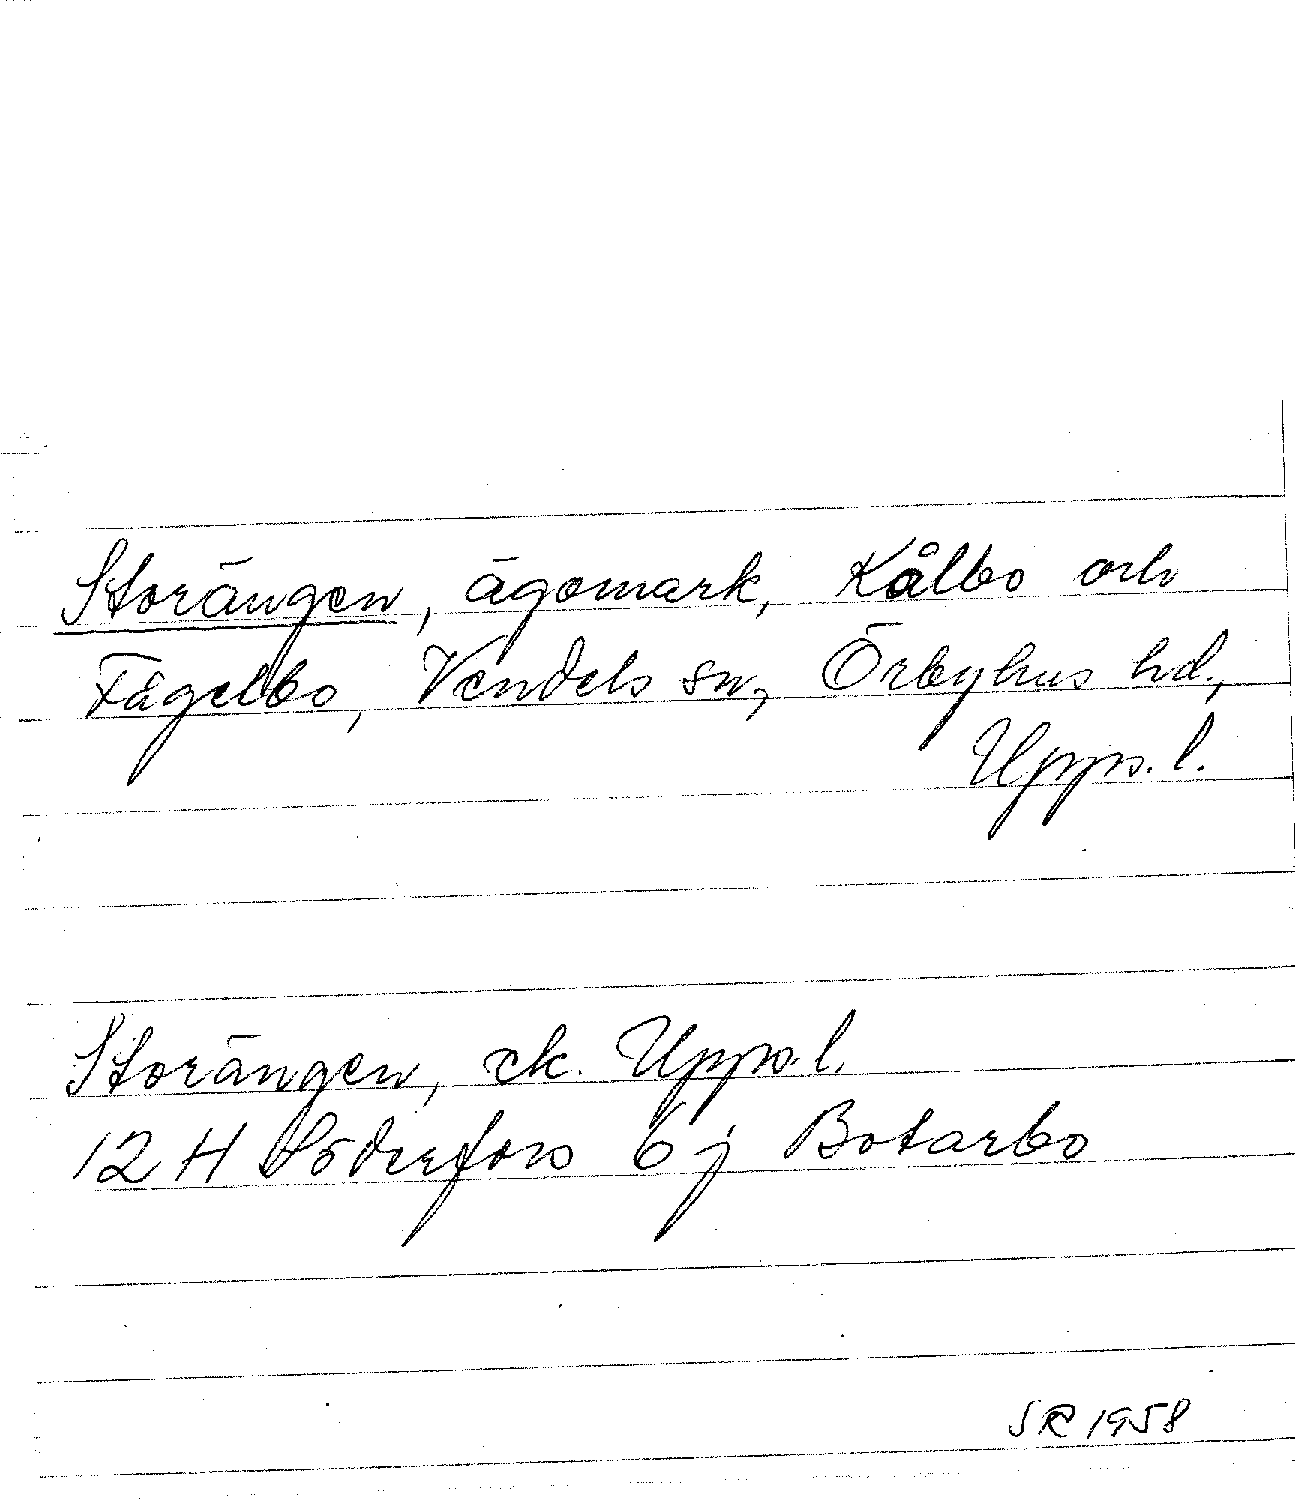 Storängen, ägomark, Kålbo och
Fågelbo, Vendels sn, Örbyhus hd.,
Upps. l.
Storängen, ek. Upps. l.
12 H Söderfors 6 j Botarbo
SR 1958